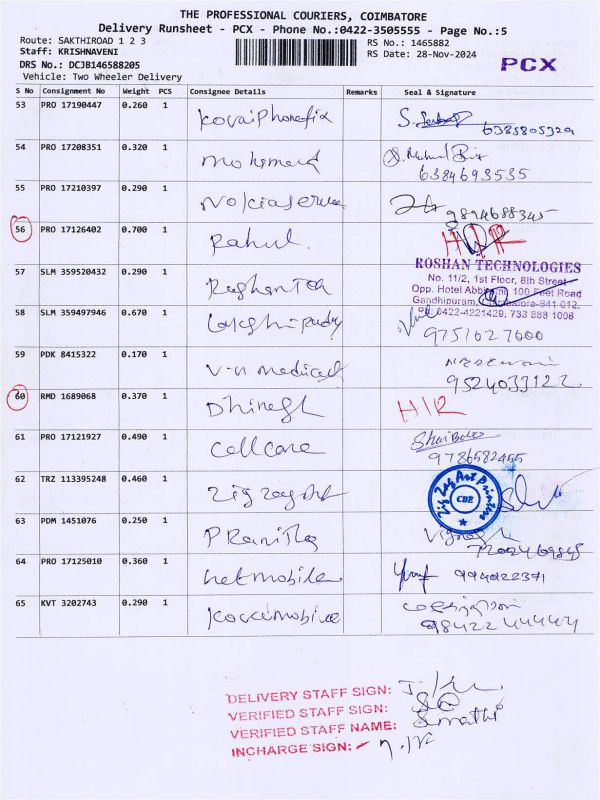 THE PROFESSIONAL COURIERS, COIMBATORE
Delivery Runsheet - PCX - Phone No.:0422-3505555 - Page No.:5
Route: SAKTHIROAD 1 2 3
RS No.: 1465882
Staff: KRISHNAVENI
RS Date: 28-Nov-2024
DRS No.: DCJB146588205
PCX
Vehicle: Two Wheeler Delivery
S No Consignment No Weight PCS Consignee Details Remarks Seal & Signature
53 PRO 17190447 0.260 1 Kovaiphonefix
6385805329
54 PRO 17208351 0.320 1
6384693535
55 PRO 17210397 0.290 1
9894688345
56 PRO 17126402 0.700 1 Rahul. H/R
ROSHAN TECHNOLOGIES
No. 11/2, 1st Floor, 8th Street
Opp. Hotel 100 Feet Road
Gandhipuram, 641 012.
0422-4221429, 733 888 1006
57 SLM 359520432 0.290 1
58 SLM 359497946 0.670 1
9751027600
59 PDK 8415322 0.170 1 V-n medical
9524033122
60 RMD 1689068 0.370 1 H/R
61 PRO 17121927 0.490 1 Cellcare
9786582455
62 TRZ 113395248 0.460 1 Zig Zag Art
Zig Zag Art Printers
CBE
63 PDM 1451076 0.250 1 Pranitha
64 PRO 17125010 0.360 1 netmobile
65 KVT 3202743 0.290 1 Kovaimobile
98422 44444
DELIVERY STAFF SIGN:
VERIFIED STAFF SIGN:
VERIFIED STAFF NAME: Sumathi
INCHARGE SIGN: